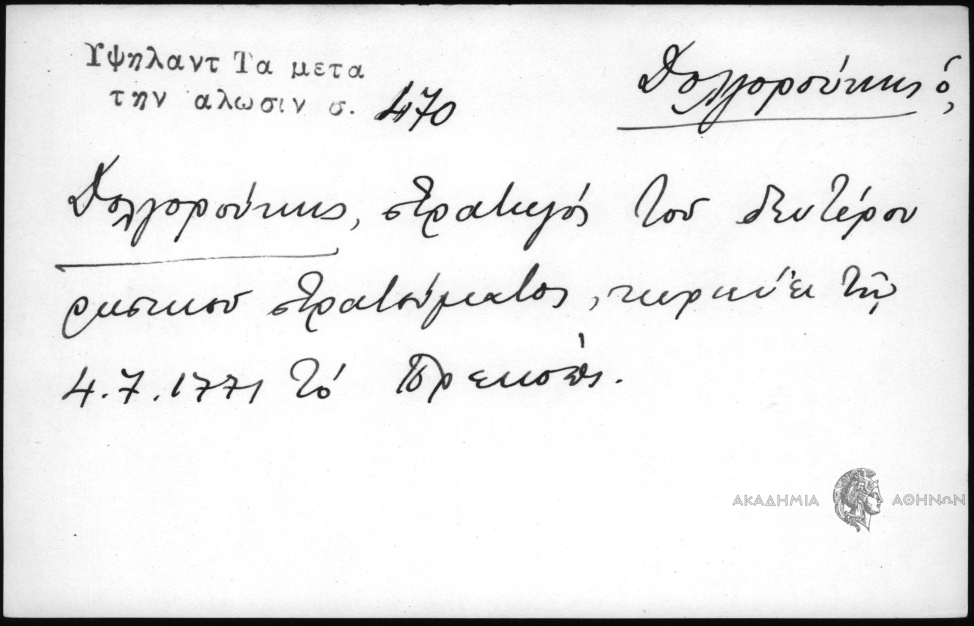 Υψηλαντ Τα μετα
την αλωσιν σ. 470
Δολγορούκης ὁ,
Δολγορούκης, στρατηγός του δευτέρου
ρωσικού στρατεύματος, κυριεύει τῇ
4.7.1771 τό Πρεκόπι.
ΑΚΑΔΗΜΙΑ ΑΘΗΝΩΝ